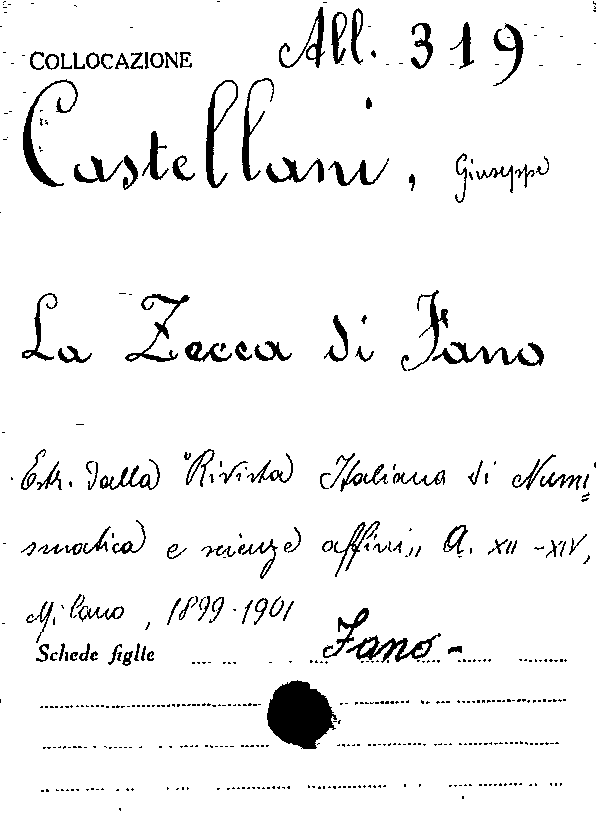 COLLOCAZIONE All. 319
Castellani, Giuseppe
La Zecca di Fano
Estr. dalla "Rivista Italiana di Numi
smatica e scienze affini,, A. XII-XIV,
Milano, 1899-1901
Schede figlie Fano-